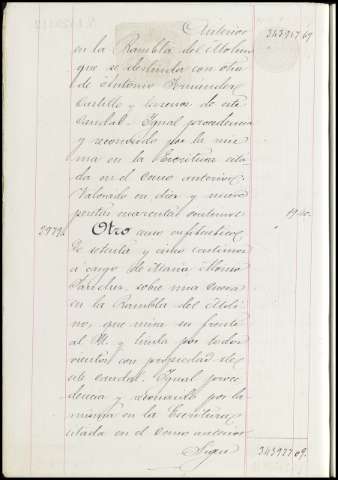 Anterior 343917 69
en la Rambla del Molino
que se deslinda con otra
de Antonio Fernández
Castillo y tierras de este
caudal. Igual procedencia
y reconocido por la mis
ma en la Escritura cita
da en el censo anterior.
Valorado en diez y nueve
pesetas cuarenta centimos 19 40
Otro censo enfiteutico
de setenta y cinco centimos
a cargo de Maria Molina
Sanchez sobre una Cueva
en la Rambla del Moli
no, que mira su frente
al M. y linda por todos
vientos con propiedad de
este caudal. Igual proce
dencia y reconocido por la
misma en la Escritura
citada en el censo anterior
Sigue 343937 09